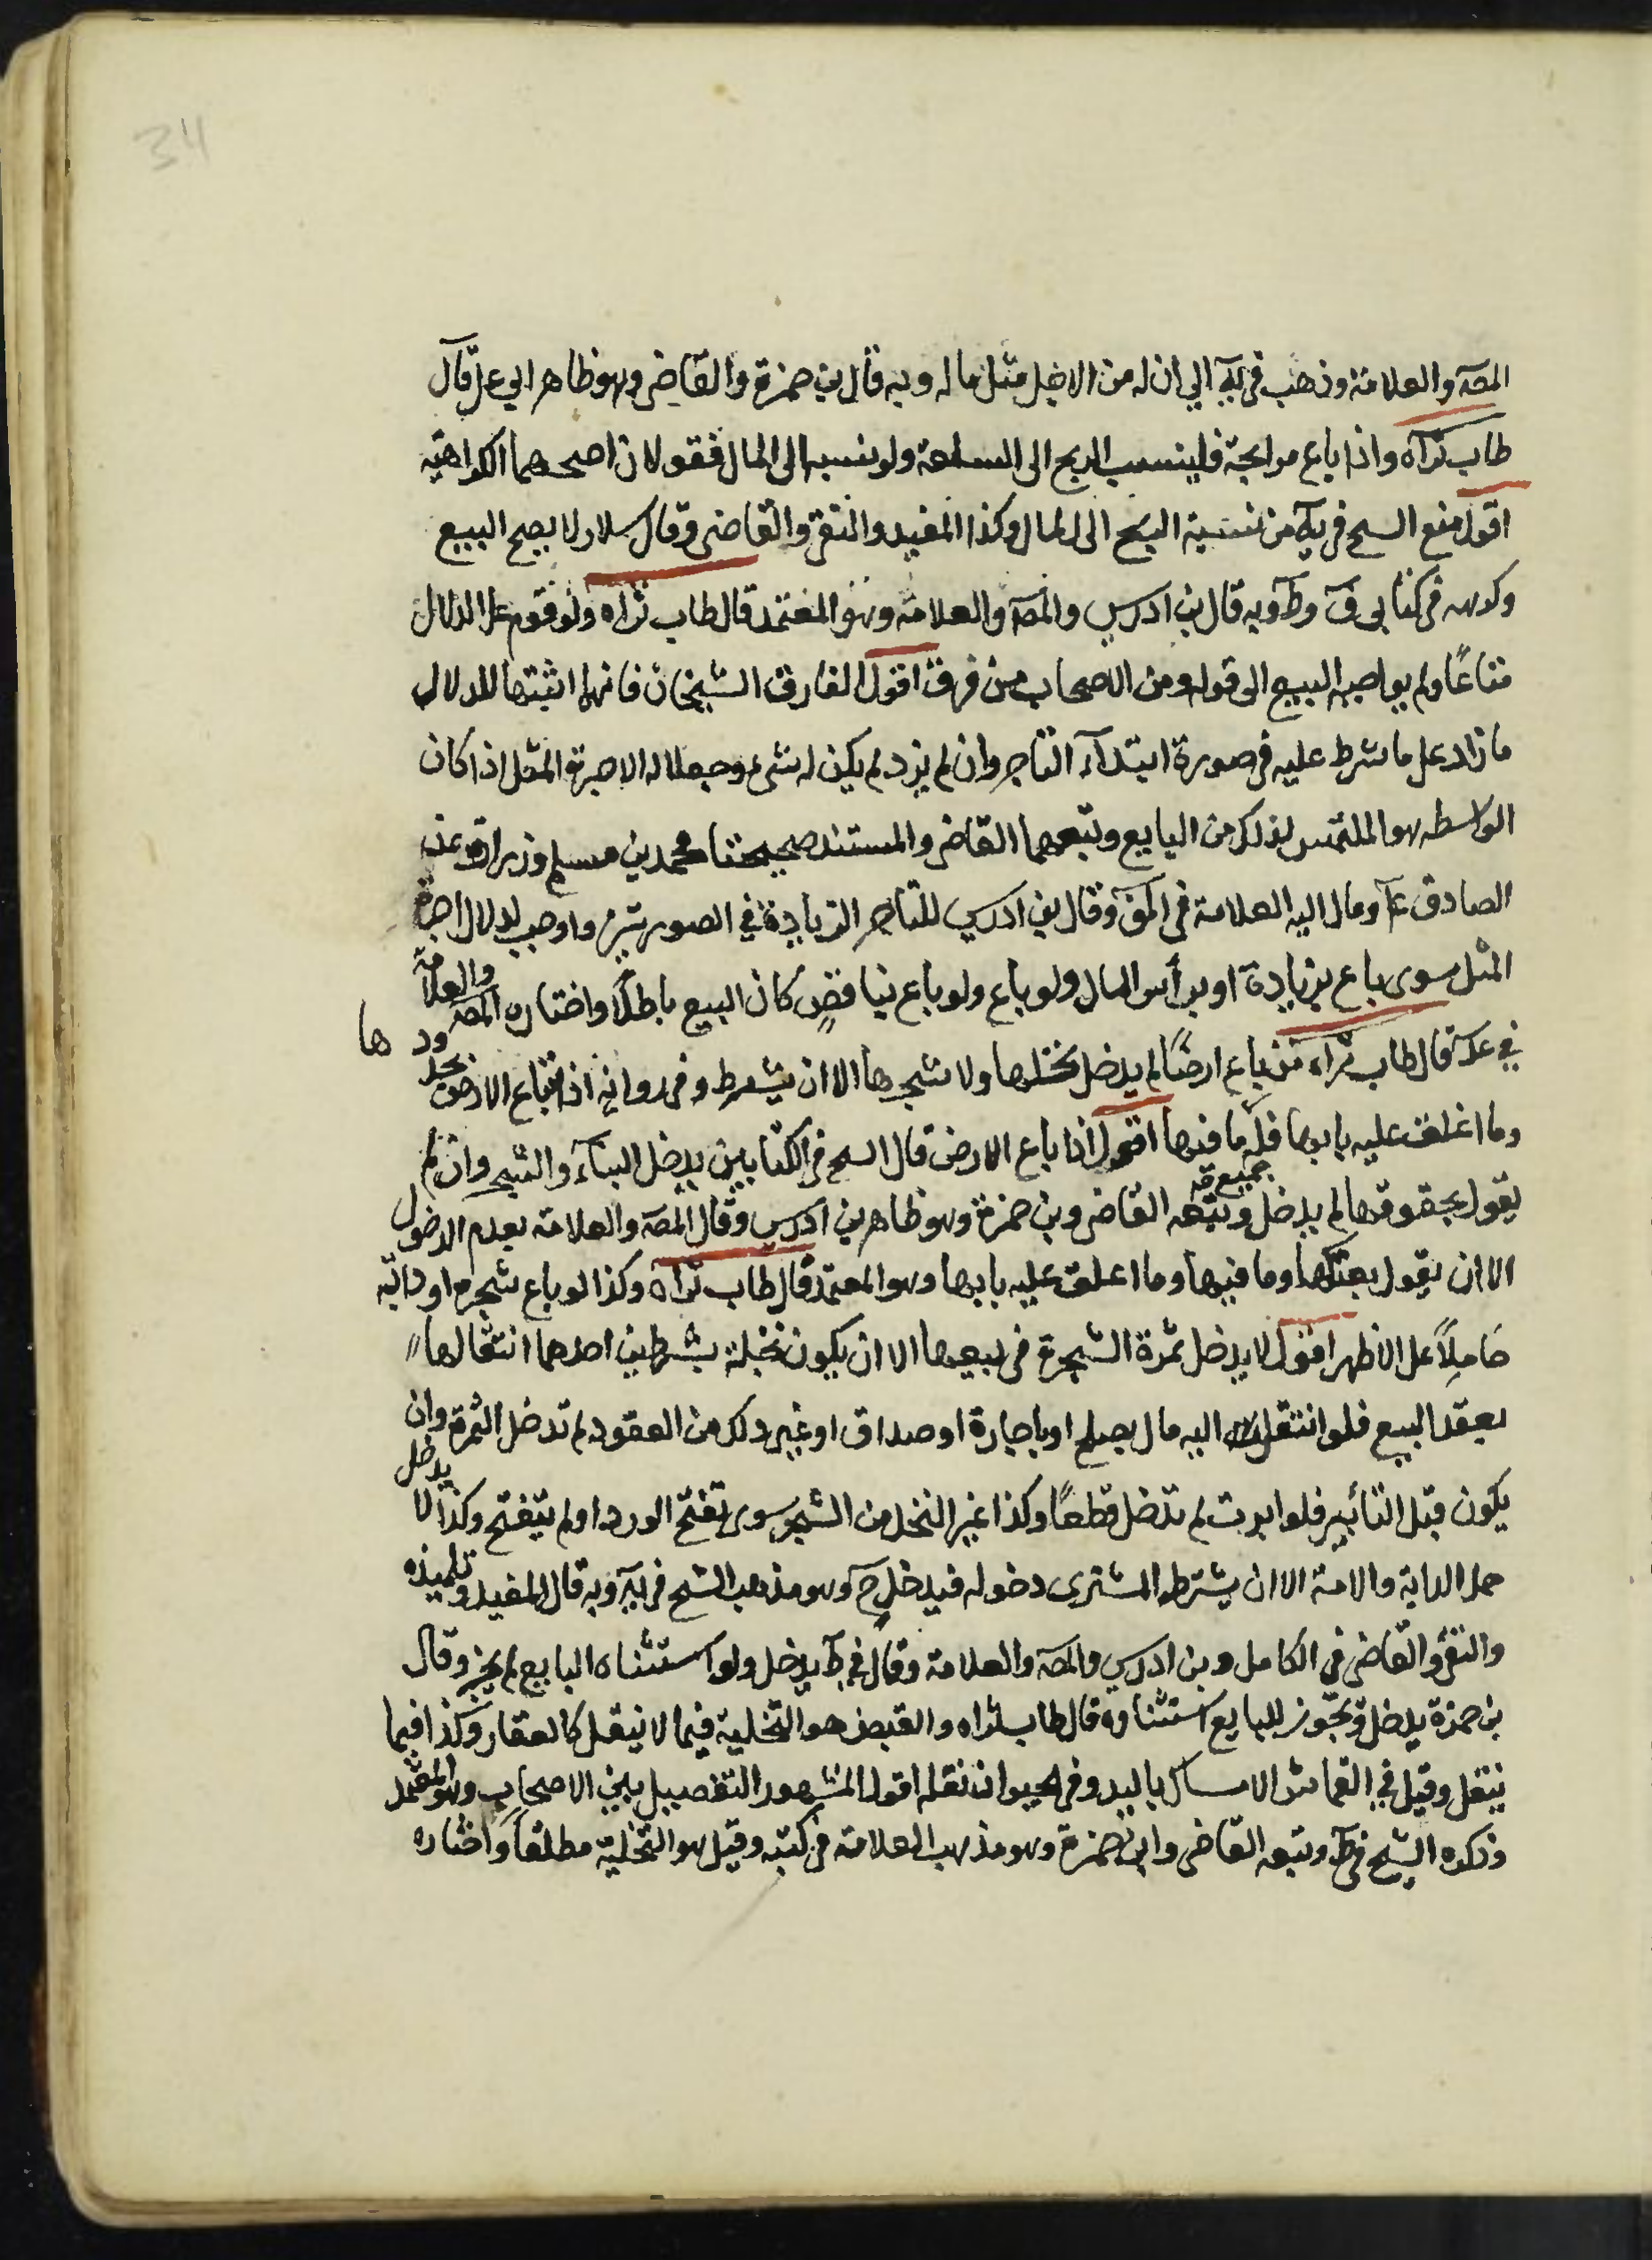 34
المصـ والعلامة وذهب في يه الي ان له من الاجل مثل ماله وبه قال بن حمزة والقاضي وهو ظاهر ابي علي قال
طاب ثراه واذا باع مرابحة فلينسب الربح الى السلعة ولو نسبه الى المال فقولان اصحهما الكراهية
اقول منع الشيخ في يه من نسبة الربح الى المال وكذا المفيد والتقي والقاضي وقال سلار لا يصح البيع
وكرهه في كتابي ف وط وبه قال بن ادريس والمصـ والعلامة وهو المعتمد قال طاب ثراه ولو قوم على الدلال
متاعًا ولم يواجبه البيع الى قوله ومن الاصحاب من فرق اقول الفارق الشيخان فانهما اثبتا للدلال
ما زاد على ما شرط عليه في صورة ابتدآء التاجر وان لم يزد لم يكن له شيء وجعلا له الاجرة المثل اذا كان
الواسطه هو الملتمس لذلك من البايع وتبعهما القاضي والمستند صحيحتا محمد بن مسلم وزرارة عن
الصادق ع ومال اليه العلامة في المخ وقال بن ادريس للتاجر الزيادة في الصورتين واوجب للدلال اجرة
المثل سوى باع بزيادة او براس المال ولو باع ولو باع بناقص كان البيع باطلا واختاره المصـ والعلامة
في عد قال طاب ثراه من باع ارضًا لم يدخل نخلها ولا شجرها الا ان يشترط وفي رواية اذا ابتاع الارض بحدودها
وما اغلق عليه بابها فله ما فيها اقول اذا باع الارض قال الشيخ في الكتابين يدخل البناء والشجر وان لم
يقول بحقوقها لم يدخل وتبعه القاضي وبن حمزة وهو ظاهر بن ادريس وقال المصـ والعلامة بعدم الدخول
الا ان يقول بعتكها وما فيها وما اغلق عليه بابها وهو المعتمد قال طاب ثراه وكذا لو باع شجرة او دابة
حاملًا على الاظهر اقول لا يدخل ثمرة الشجرة في بيعها الا ان يكون نخلة بشرطين احدهما انتقالها
بعقد البيع فلو انتقلت اليه مال بصلح او باجارة او صداق او غير ذلك من العقود لم تدخل الثمرة وان
يكون قبل التأبير فلو ابرت لم تدخل قطعًا وكذا غير النخل من الشجر سوى تفتح الورد او لم يتفتح وكذا لا يدخل
حمل الدابة والامة الا ان يشترط المشتري دخوله فيدخل ح وهو مذهب الشيخ في يه وبه قال المفيد وتلميذه
والتقي والقاضي في الكامل وبن ادريس والمصـ والعلامة وقال في ط يدخل ولو استثناه البايع لم يجز وقال
بن حمزة يدخل ويجوز للبايع استثناوه قال طاب ثراه والقبض هو التخلية فيما لا ينقل كالعقار وكذا فيما
ينقل وقيل في القماش الامساك باليد وفي الحيوان نقله اقول المشهور التفصيل بين الاصحاب وهو المعتمد
وذكره الشيخ في ط وتبعه القاضي وابن حمزة وهو مذهب العلامة في كتبه وقيل هو التخلية مطلقًا واختاره